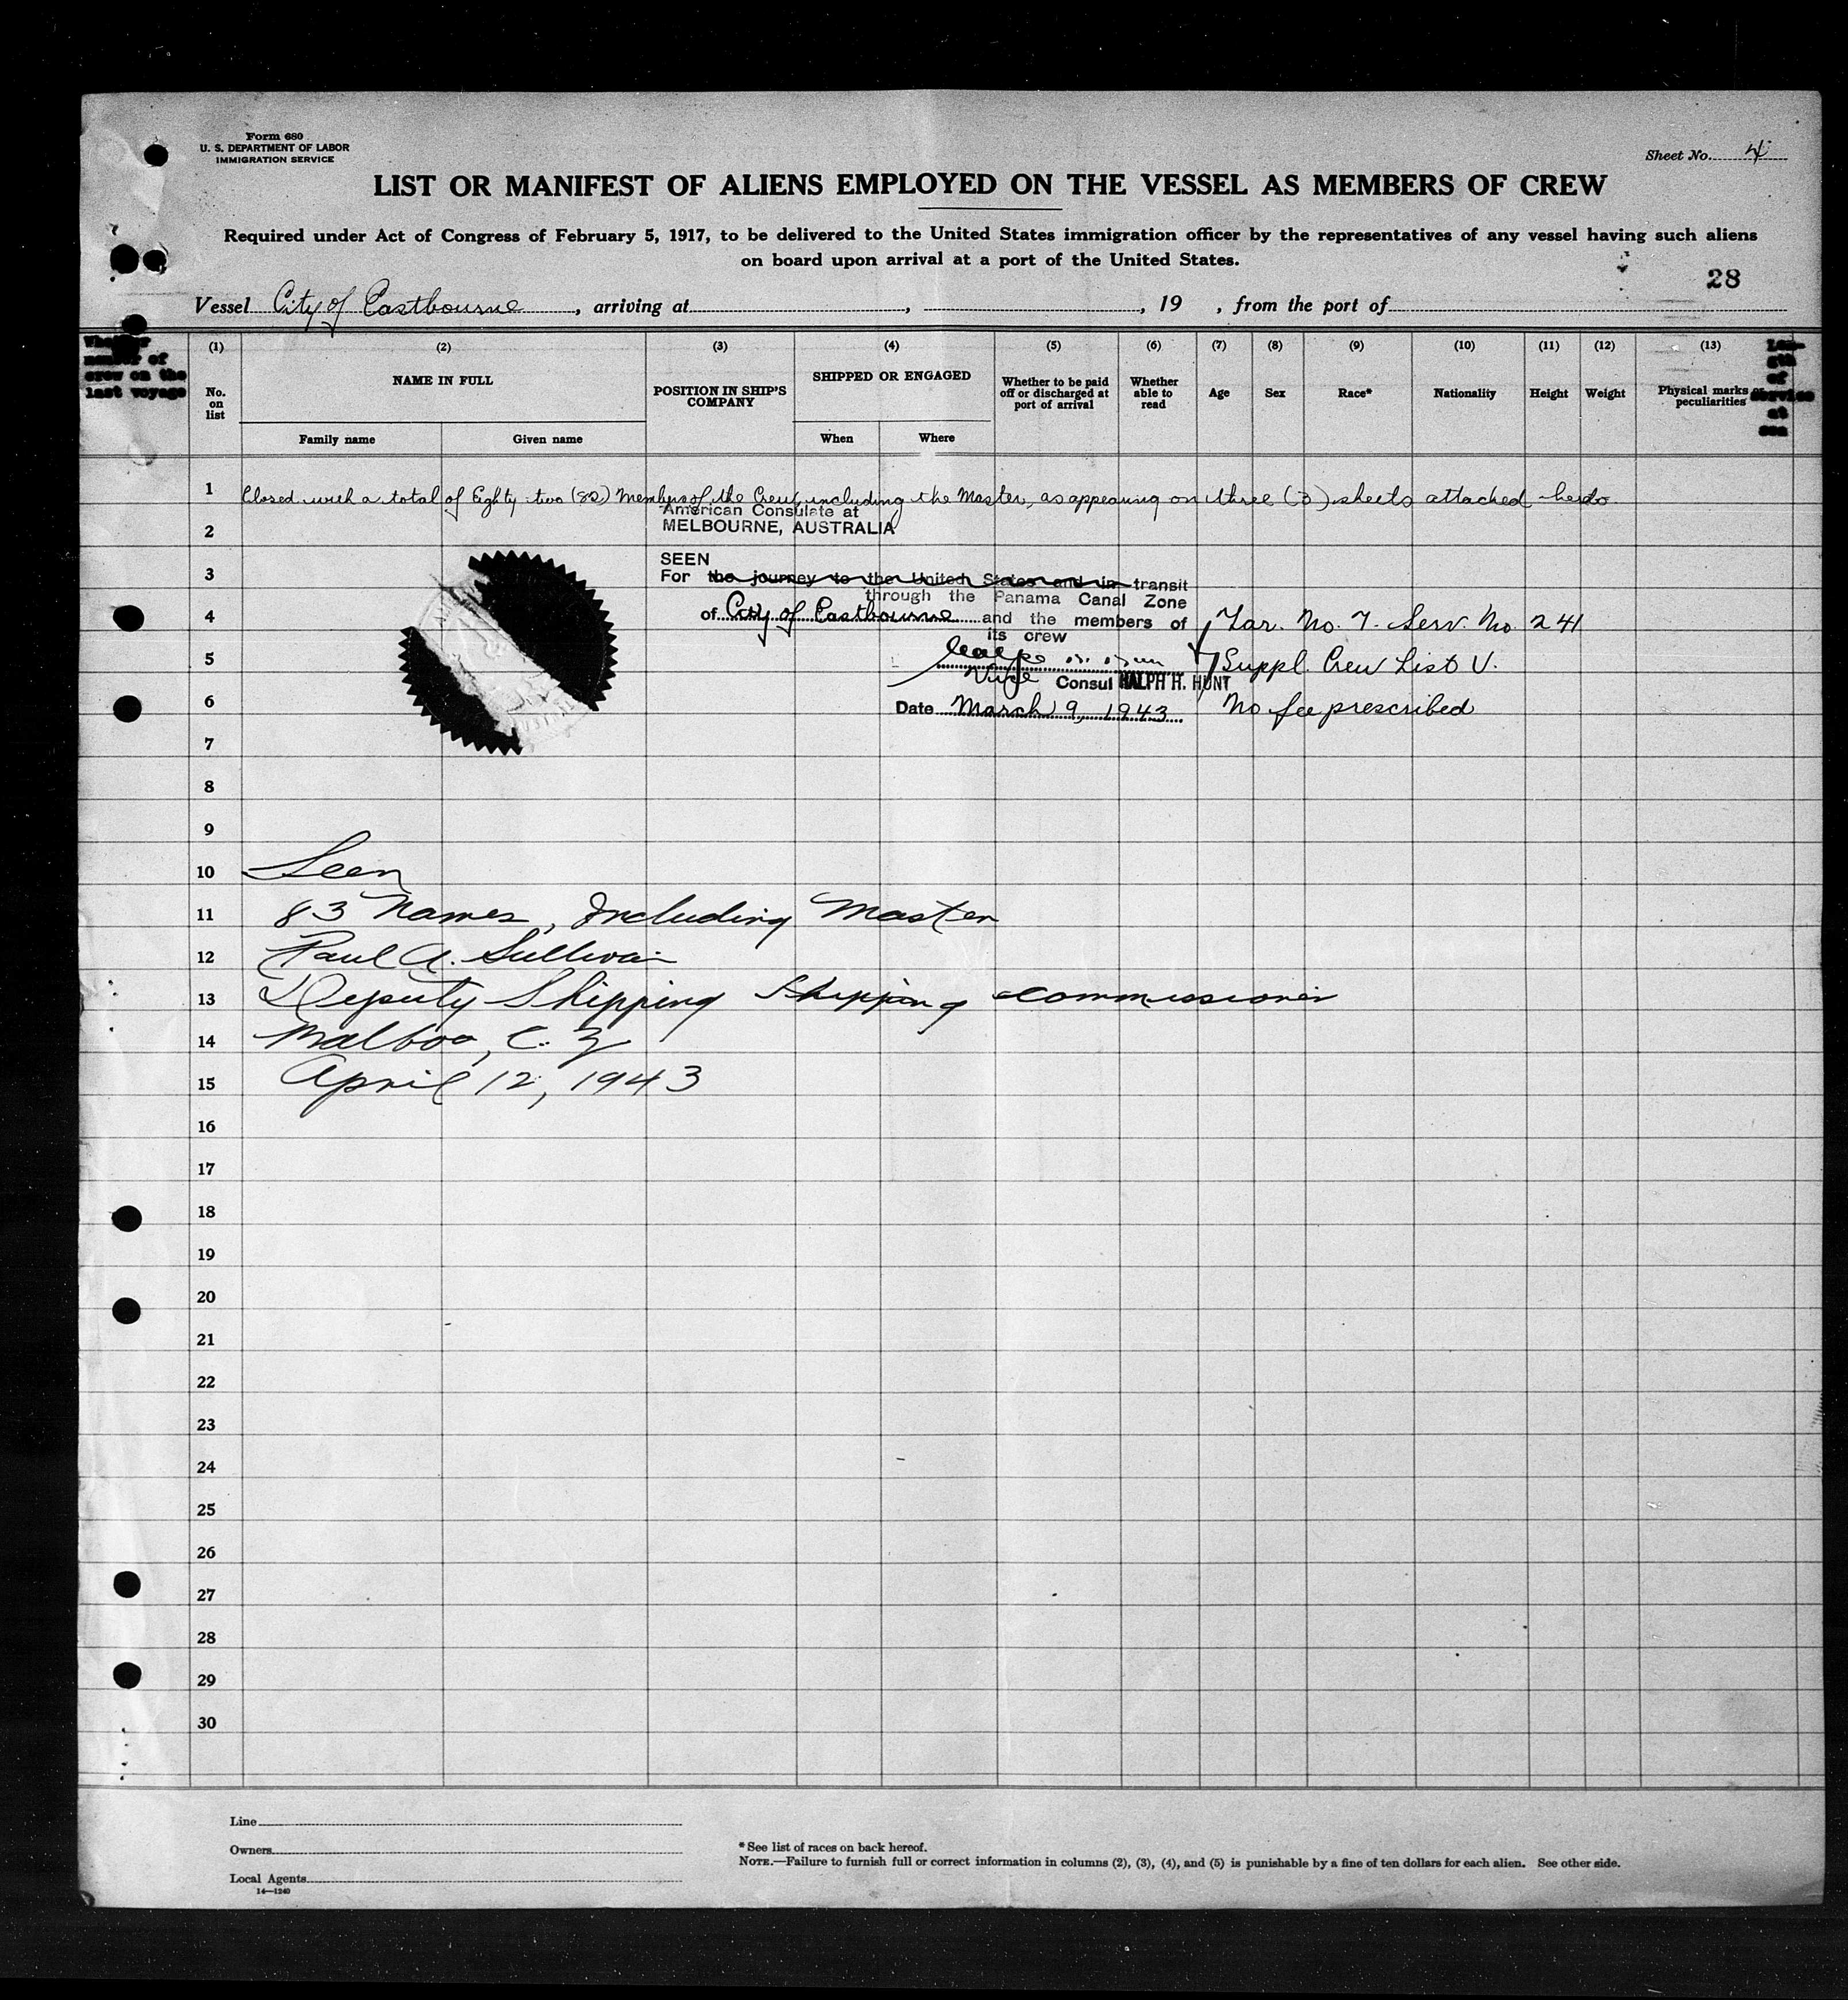 Form 680
U. S. DEPARTMENT OF LABOR
IMMIGRATION SERVICE
Sheet No. 4
LIST OR MANIFEST OF ALIENS EMPLOYED ON THE VESSEL AS MEMBERS OF CREW
Required under Act of Congress of February 5, 1917, to be delivered to the United States immigration officer by the representatives of any vessel having such aliens
on board upon arrival at a port of the United States.
28
Vessel City of Eastbourne, arriving at , , 19 , from the port of
Whether member of crew on the last voyage
(1) No. on list
(2) NAME IN FULL
Family name Given name
(3) POSITION IN SHIP'S COMPANY
(4) SHIPPED OR ENGAGED
When Where
(5) Whether to be paid off or discharged at port of arrival
(6) Whether able to read
(7) Age
(8) Sex
(9) Race*
(10) Nationality
(11) Height
(12) Weight
(13) Physical marks or peculiarities
Length of Service at sea
1 Closed with a total of Eighty two (82) Members of the Crew, including the Master, as appearing on three (3) sheets attached hereto.
American Consulate at
2 MELBOURNE, AUSTRALIA
SEEN
3 For the journey to the United States and in transit
through the Panama Canal Zone
4 of City of Eastbourne and the members of Tar. No. 7. Serv. No. 241
its crew
5 Suppl. Crew List V.
Vice Consul RALPH H. HUNT
6 Date March 9, 1943 No fee prescribed
7
8
9
10 Seen
11 83 Names, Including Master
12 Paul A. Sullivan
13 Deputy Shipping Shipping commissioner
14 Malboa, C. Z
15 April 12, 1943
16
17
18
19
20
21
22
23
24
25
26
27
28
29
30
Line
Owners
Local Agents
14—1240
* See list of races on back hereof.
NOTE.—Failure to furnish full or correct information in columns (2), (3), (4), and (5) is punishable by a fine of ten dollars for each alien. See other side.